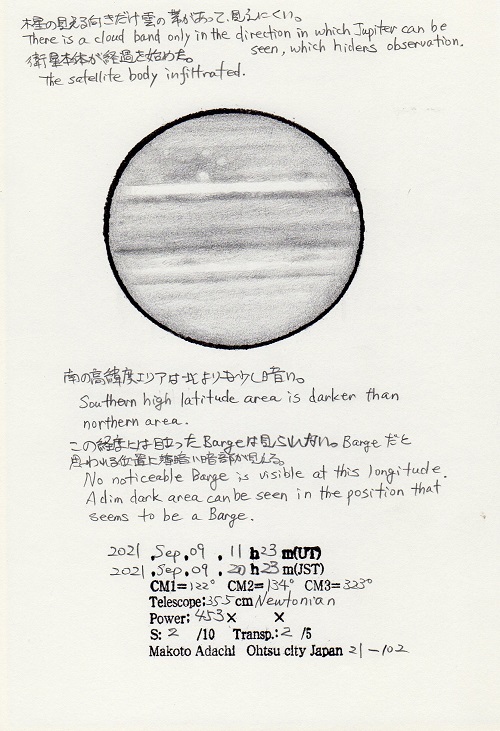 木星の見える向きだけ雲の帯があって、見えにくい。
There is a cloud band only in the direction in which Jupiter can be
seen, which hidens observation.
衛星本体が経過を始めた。
The satellite body infiltrated.
南の高緯度エリアは北よりも少し暗い。
Southern high latitude area is darker than
northern area.
この経度には目立ったBargeは見られない。Bargeだと
思われる位置に薄暗い暗部が見える。
No noticeable Barge is visible at this longitude.
A dim dark area can be seen in the position that
seems to be a Barge.
2021 .Sep.09 .11 h23 m(UT)
2021 .Sep.09 .20 h23 m(JST)
CM1=122° CM2=134° CM3=323°
Telescope:35.5cm Newtonian
Power:453× ×
S: 2 /10 Transp.:2 /5
Makoto Adachi Ohtsu city Japan 21-102